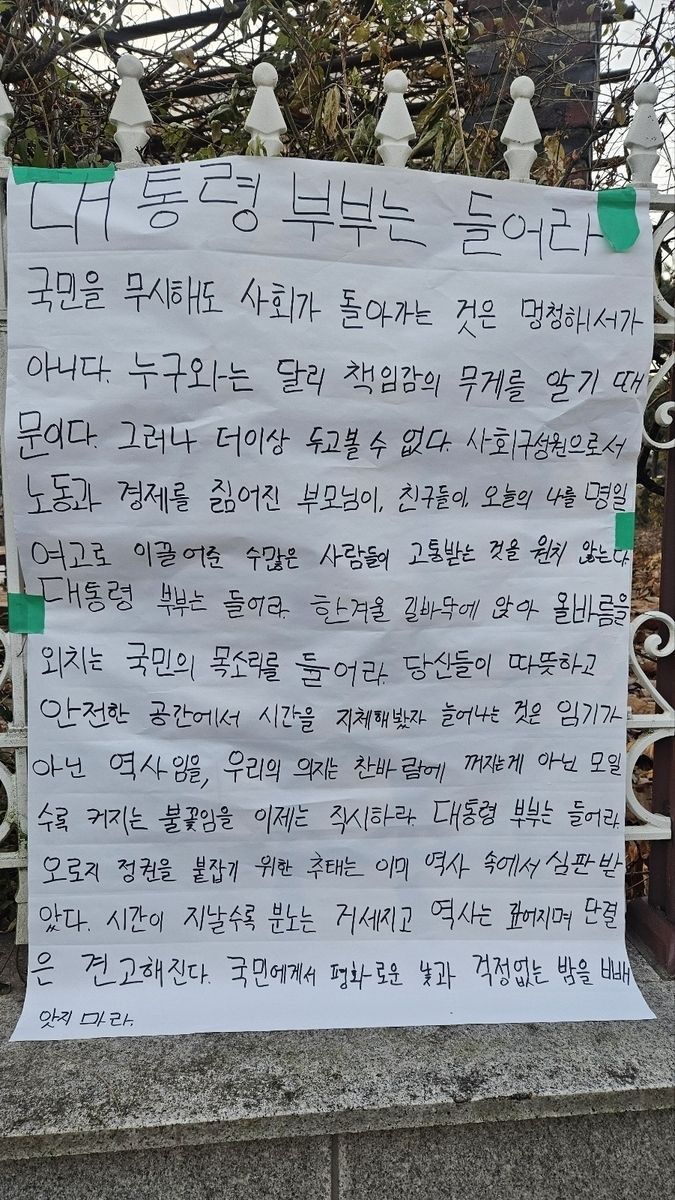 대통령 부부는 들어라
국민을 무시해도 사회가 돌아가는 것은 멍청해서가
아니다. 누구와는 달리 책임감의 무게를 알기 때
문이다. 그러나 더이상 두고볼 수 없다. 사회구성원으로서
노동과 경제를 짊어진 부모님이, 친구들이, 오늘의 나를 명일
여고로 이끌어준 수많은 사람들이 고통받는 것을 원치 않는다.
대통령 부부는 들어라. 한겨울 길바닥에 앉아 올바름을
외치는 국민의 목소리를 들어라. 당신들이 따뜻하고
안전한 공간에서 시간을 지체해봤자 늘어나는 것은 임기가
아닌 역사임을, 우리의 의지는 찬바람에 꺼지는게 아닌 모일
수록 커지는 불꽃임을 이제는 직시하라. 대통령 부부는 들어라.
오로지 정권을 붙잡기 위한 추태는 이미 역사 속에서 심판받
았다. 시간이 지날수록 분노는 거세지고 역사는 깊어지며 단결
은 견고해진다. 국민에게서 평화로운 낮과 걱정없는 밤을 빼
앗지 마라.